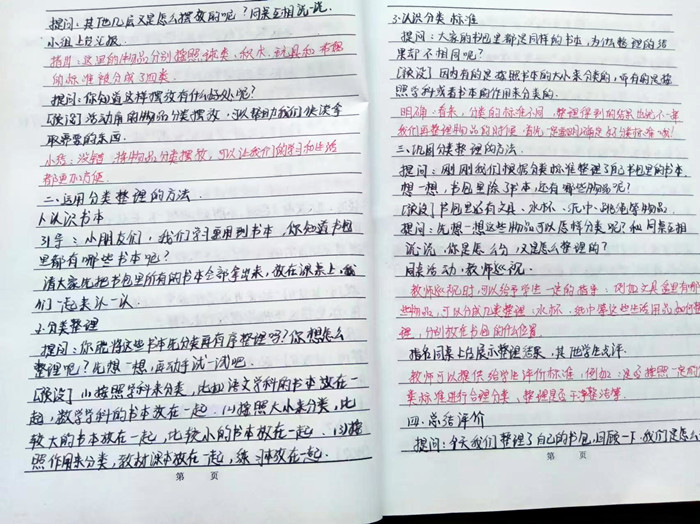 提问：其他几层又是怎么摆放的呢？同桌互相说一说，
小组上台汇报．
指出：这里的物品分别按照球类、积木、玩具和书本
的标准被分成了四类．
提问：你知道这样摆放有什么好处呢？
［预设］活动角的物品分类摆放，可以帮助我们快速拿
取需要的东西．
小结：没错，将物品分类摆放，可以让我们的学习和生活
都更加方便．
二、运用分类整理的方法
1.认识书本
引导：小朋友们，我们学习要用到书本，你知道书包
里都有哪些书本呢？
请大家先把书包里所有的书本全部拿出来，放在课桌上，我
们一起来认一认．
2.分类整理
提问：你能将这些书本先分类再有序整理吗？你想怎么
整理呢？先想一想，再动手试一试吧．
［预设］(1)按照学科来分类，比如语文学科的书本放在一
起，数学学科的书本放在一起．(2)按照大小来分类，比
较大的书本放在一起，比较小的书本放在一起．(3)按
照作用来分类，教材课本放在一起，练习本放在一起．
第 页
3.认识分类标准
提问：大家的书包里都是同样的书本，为什么整理的结
果却不相同呢？
［预设］因为有的是按照书本的大小来分类的，而有的是按
照学科或者书本的作用来分类的．
明确：看来，分类的标准不同，整理得到的结果也就不一样
我们再整理物品的时候，首先一定要明确定好分类标准哦！
三、巩固分类整理的方法．
提问：刚刚我们根据分类标准整理了自己书包里的书本
想一想，书包里除了书本，还有哪些物品呢？
［预设］书包里还有文具、水杯、纸巾、跳绳等物品．
提问：先想一想这些物品可以怎样分类呢？和同桌互相
说一说，你是怎么分，又是怎么整理的？
同桌活动，教师巡视．
教师巡视时，可以给予学生一定的指导：例如文具盒里有哪
些物品，可以分成几类整理；水杯、纸巾等这些生活用品如何整
理，分别放在书包的什么位置．
指名同桌上台展示整理结果，其他学生点评．
教师可以提供给学生评价标准，例如：是否按照一定的分
类标准进行合理分类，整理是否干净整洁等．
四、总结评价
提问：今天我们整理了自己的书包，回顾一下，我们是怎么
第 页